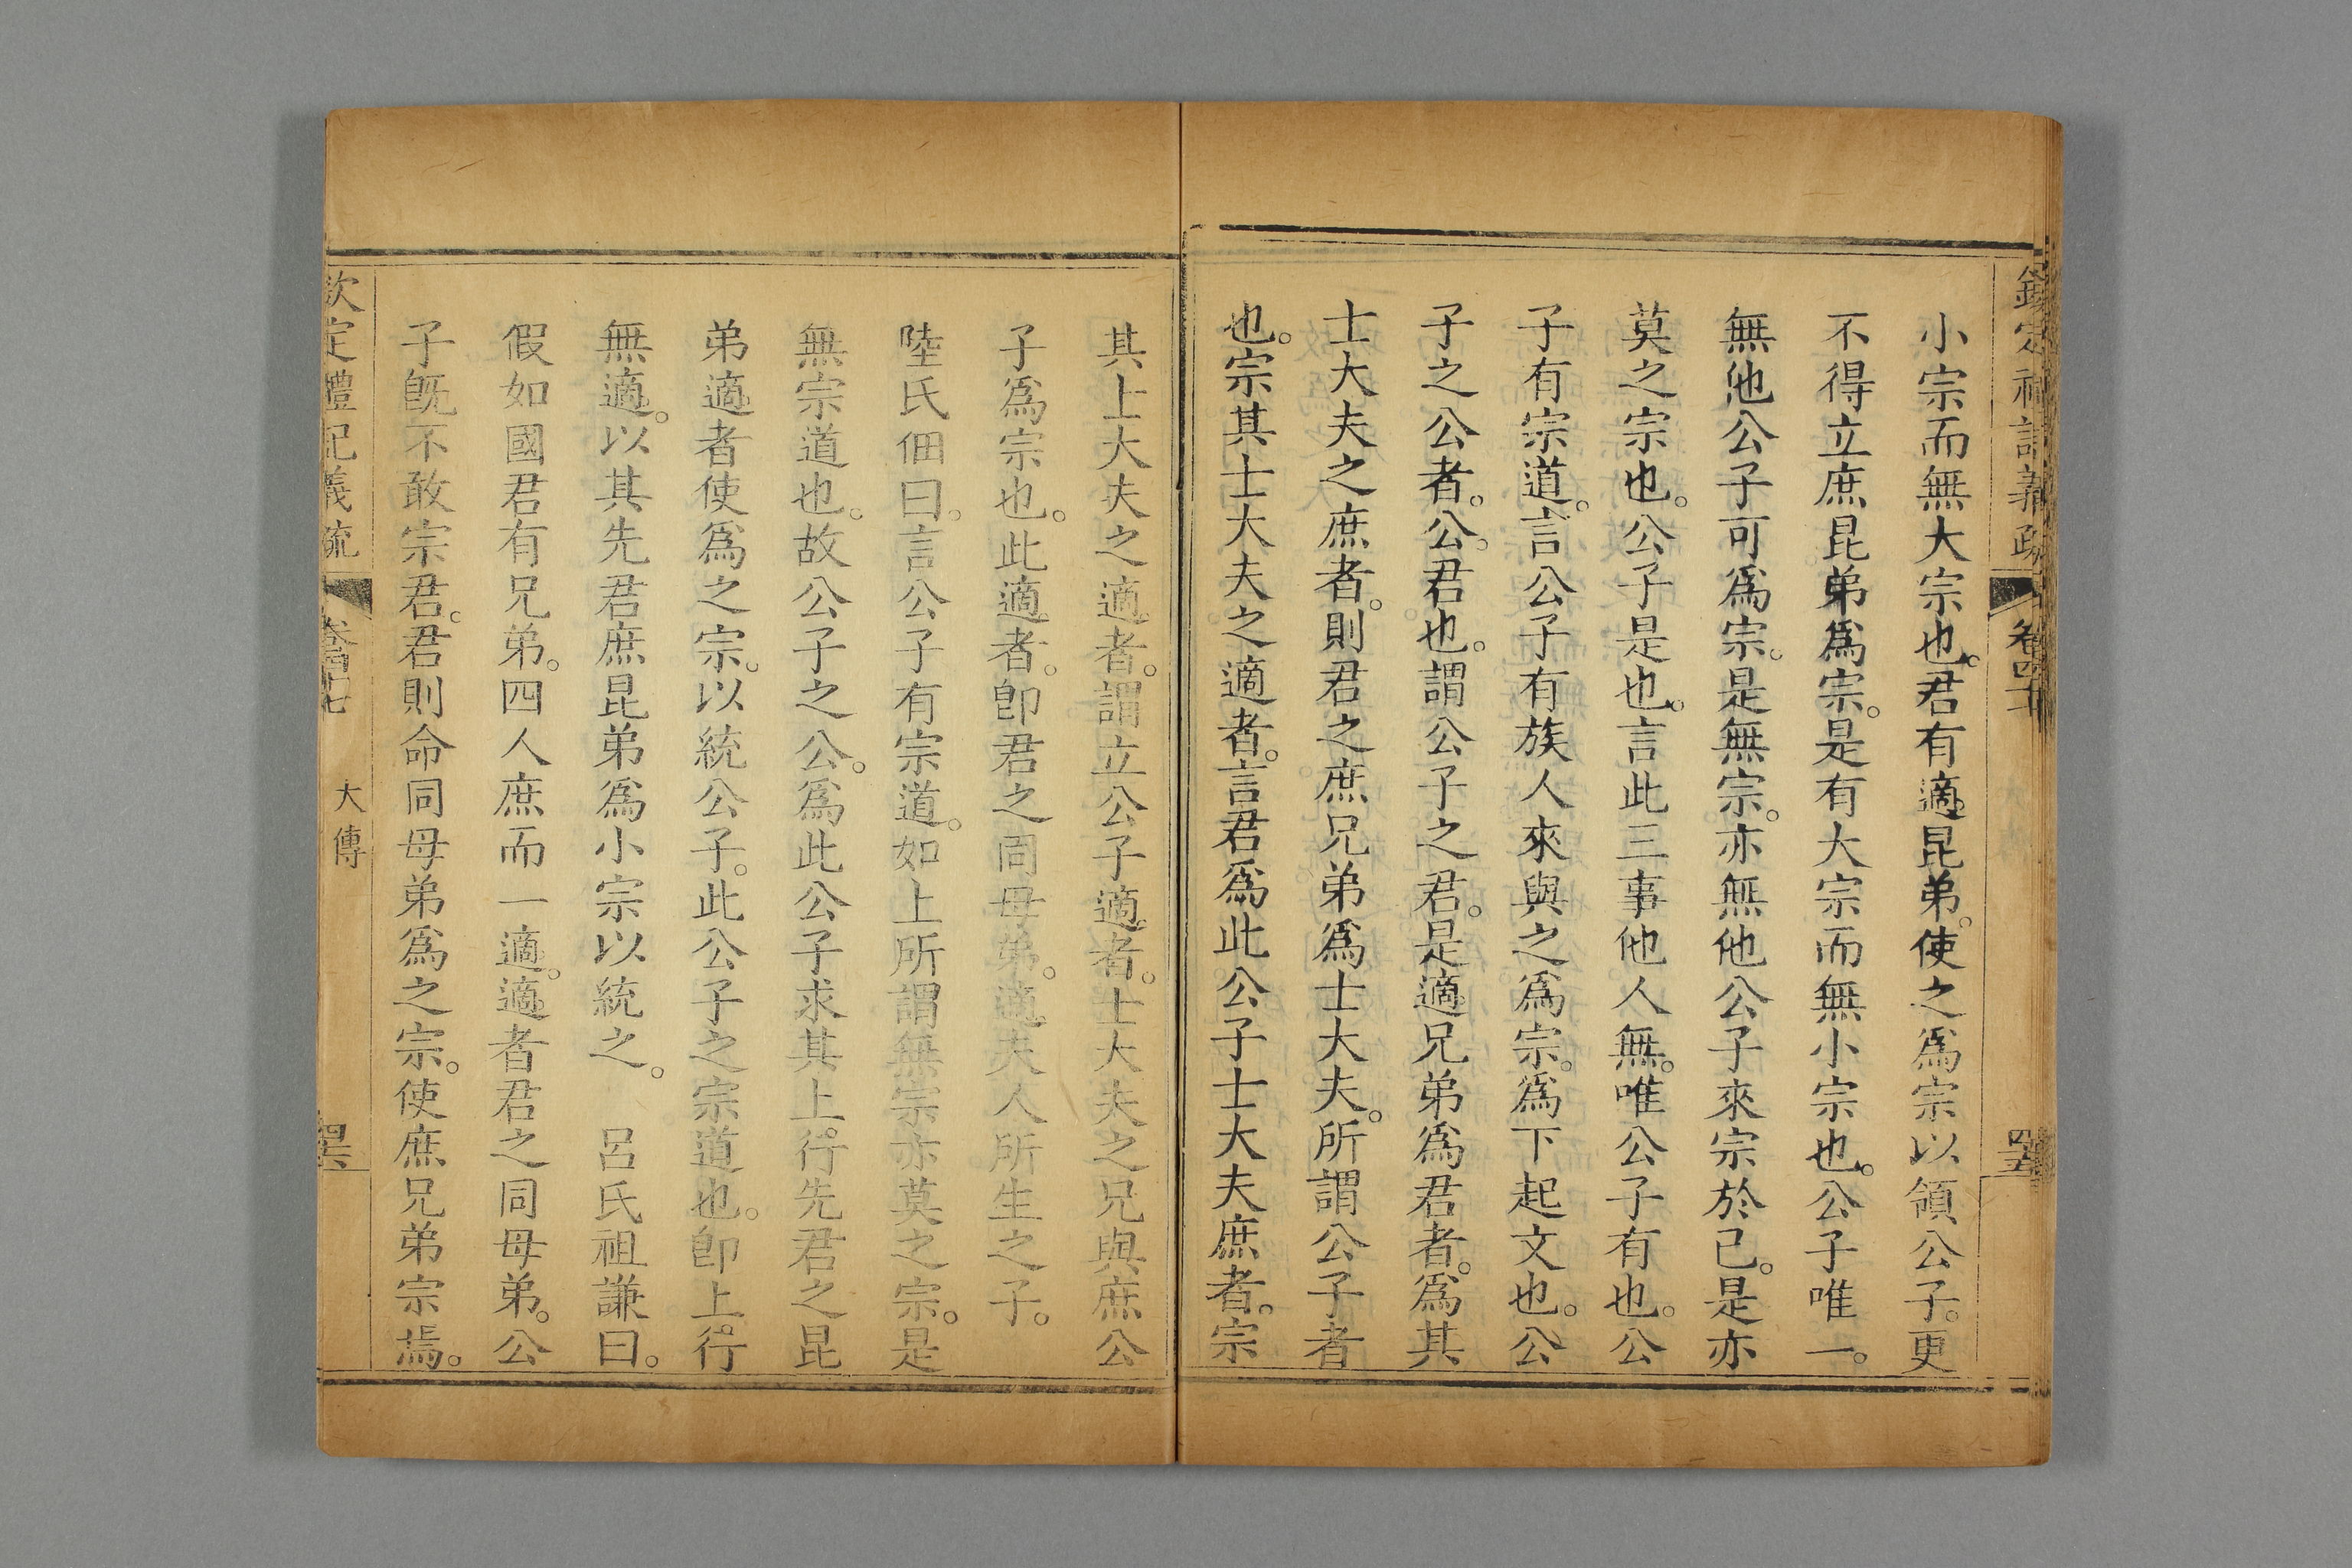 小宗而無大宗也。君有適昆弟。使之爲宗以領公子。更
不得立庶昆弟爲宗。是有大宗而無小宗也。公子唯一。
無他公子可爲宗。是無宗。亦無他公子來宗於己。是亦
莫之宗也。公子是也。言此三事他人無。唯公子有也。公
子有宗道。言公子有族人來與之爲宗。爲下起文也。公
子之公者。公。君也。謂公子之君。是適兄弟爲君者。爲其
士大夫之庶者。則君之庶兄弟爲士大夫。所謂公子者
也。宗其士大夫之適者。言君爲此公子士大夫庶者。宗
其上大夫之適者。謂立公子適者。士大夫之兄與庶公
子爲宗也。此適者。卽君之同母弟。適夫人所生之子。
陸氏佃曰。言公子有宗道。如上所謂無宗亦莫之宗。是
無宗道也。故公子之公。爲此公子求其上行先君之昆
弟適者使爲之宗。以統公子。此公子之宗道也。卽上行
無適。以其先君庶昆弟爲小宗以統之。 呂氏祖謙曰。
假如國君有兄弟。四人庶而一適。適者君之同母弟。公
子旣不敢宗君。君則命同母弟爲之宗。使庶兄弟宗焉。
欽定禮記義疏 卷四十七 大傳 四六